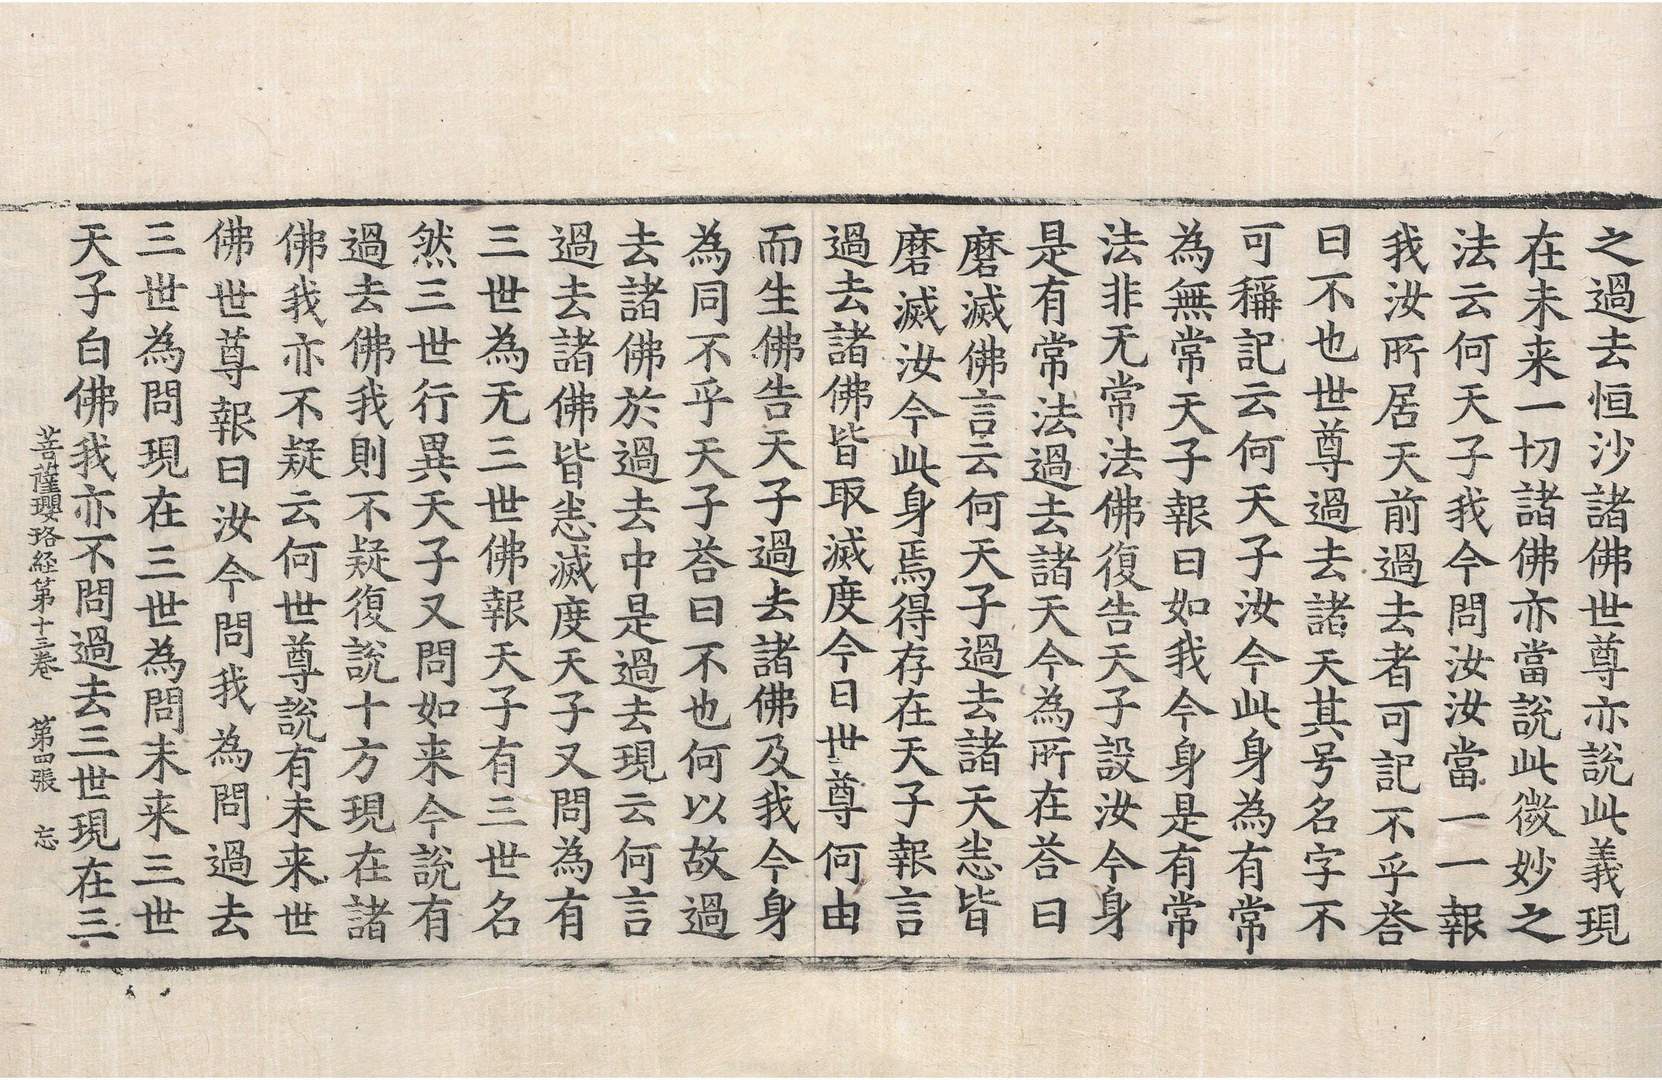 之過去恒沙諸佛世尊亦說此義現
在未来一切諸佛亦當說此微妙之
法云何天子我今問汝汝當一一報
我汝所居天前過去者可記不乎荅
曰不也世尊過去諸天其号名字不
可稱記云何天子汝今此身為有常
為無常天子報曰如我今身是有常
法非无常法佛復告天子設汝今身
是有常法過去諸天今為所在荅曰
磨滅佛言云何天子過去諸天悉皆
磨滅汝今此身焉得存在天子報言
過去諸佛皆取滅度今日世尊何由
而生佛告天子過去諸佛及我今身
為同不乎天子荅曰不也何以故過
去諸佛於過去中是過去現云何言
過去諸佛皆悉滅度天子又問為有
三世為无三世佛報天子有三世名
然三世行異天子又問如来今說有
過去佛我則不疑復說十方現在諸
佛我亦不疑云何世尊說有未来世
佛世尊報曰汝今問我為問過去
三世為問現在三世為問未来三世
天子白佛我亦不問過去三世現在三
菩薩瓔珞経第十三卷 第四張 忘